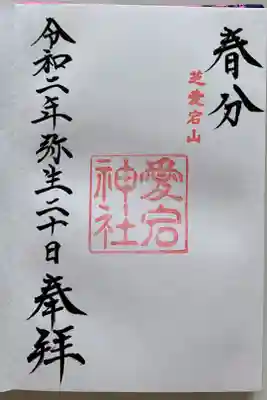 春分
芝愛宕山
愛宕
神社
奉拝
令和二年弥生二十日